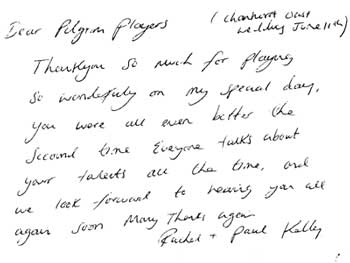 Dear Pilgrim Players
( Chenhurst West
wedding June 11th )
Thankyou so much for playing
so wonderfully on my special day,
you were all even better the
second time Everyone talks about
your talents all the time, and
we look forward to hearing you all
again soon Many Thanks again
Rachel + Paul Kelley